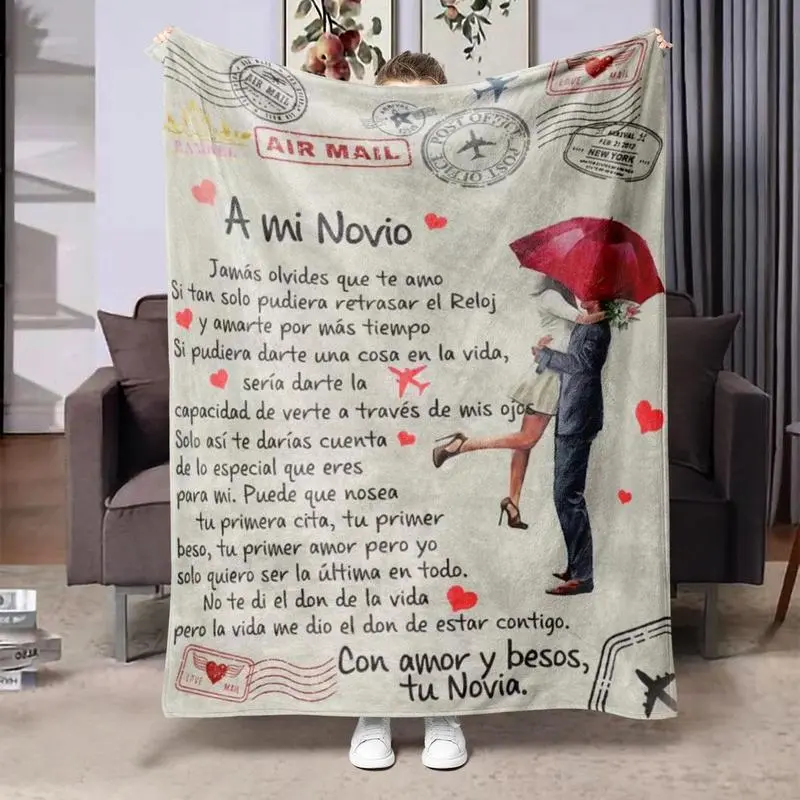 AIR MAIL
LOVE MAIL
ARRIVAL
POST OFFICE
POST OFFICE
ARRIVAL
FEB 21 2012
NEW YORK
AIR MAIL
A mi Novio
Jamás olvides que te amo
Si tan solo pudiera retrasar el Reloj
y amarte por más tiempo
Si pudiera darte una cosa en la vida,
sería darte la
capacidad de verte a través de mis ojos
Solo así te darías cuenta
de lo especial que eres
para mi. Puede que nosea
tu primera cita, tu primer
beso, tu primer amor pero yo
solo quiero ser la última en todo.
No te di el don de la vida
pero la vida me dio el don de estar contigo.
Con amor y besos,
tu Novia.
LOVE MAIL